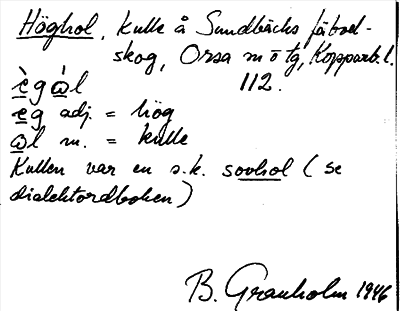 Höghol, kulle å Sundbäcks fäbod-
skog, Orsa sn o tg, Kopparb. l.
ègàl 112.
eg adj. = hög
al m. = kulle
Kullen var en s.k. sovhol (se
dialektordboken)
B. Granholm 1946